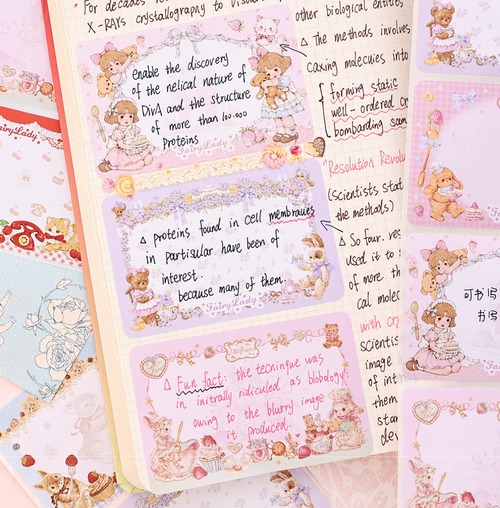 For decades
X-RAYs crystallography to visual
other biological entities
△ The methods involves
Caxing molecules into
forming static
well-ordered cr
bombarding sam
enable the discovery
of the nelical nature of
DivA and the structure
of more than 100.000
proteins
FairyLady
"Resolution Revolu
(scientists stat
the methods)
△ proteins found in cell membraues
in partisular have been of
interest.
because many of them.
FairyLady
△ So far. res
used it to s
of more th
cal molec
with cry
scientis
image
of int
them
star
△ Fun fact: the tecningue was
in initrally ridiculed as blobology:
owing to the blurry image
it produced.
FairyLady
可书写
书写